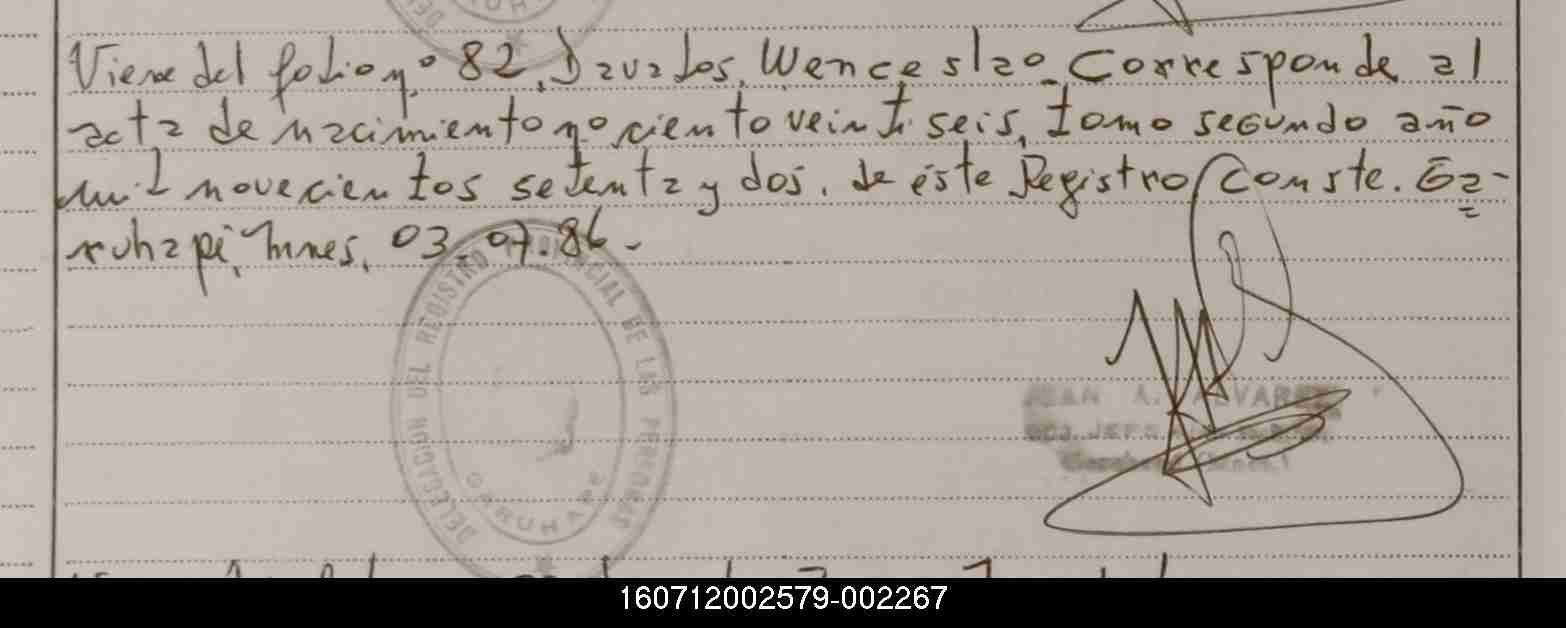 Viene del folio nº 82, Davalos, Wenceslao. Corresponde al
acta de nacimiento nº ciento veintiseis, tomo segundo año
mil novecientos setenta y dos. de éste Registro Conste. Ga-
ruhapé, Mnes, 03.07.86.-
DELEGACION DEL REGISTRO PROVINCIAL DE LAS PERSONAS
GARUHAPE
JUAN A. ALVAREZ
JEFE
160712002579-002267